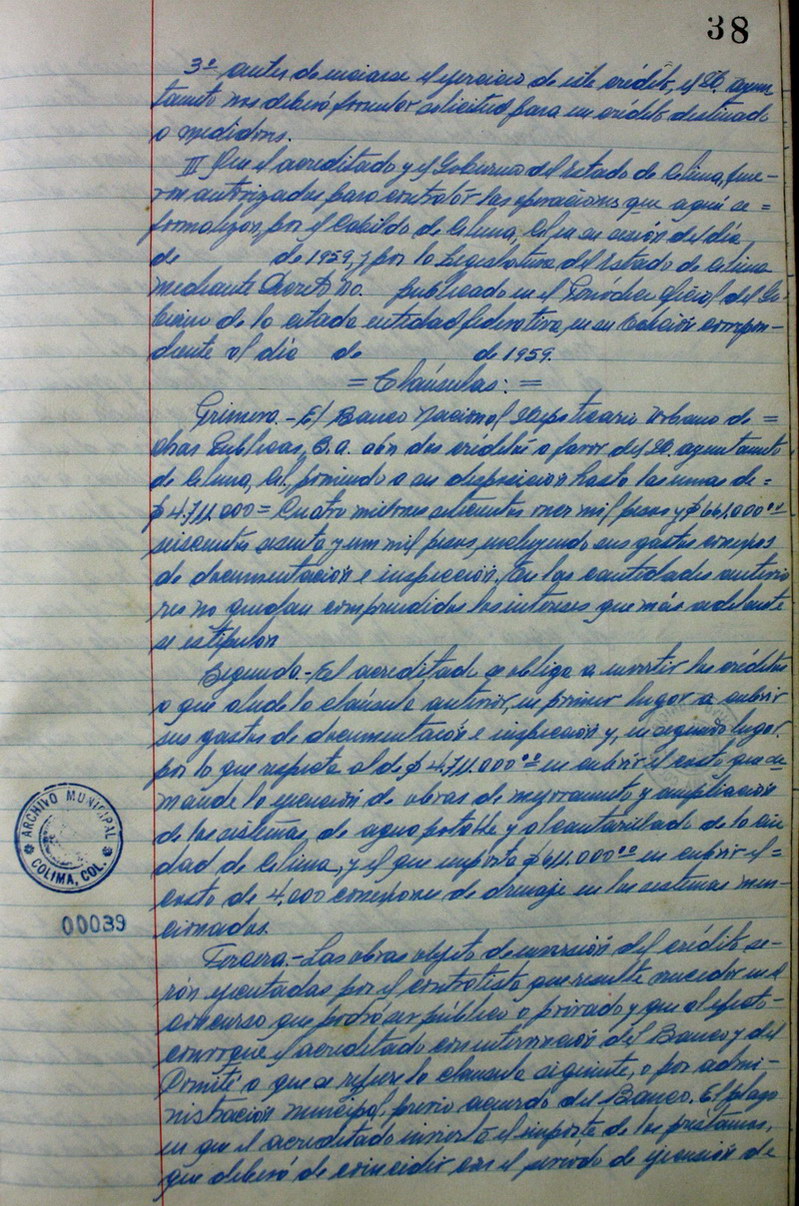 38
3º antes de iniciarse el ejercicio de este crédito, el H. ayun
tamiento nos deberá formular solicitud para un crédito destinado
a medidores.
III Que el acreditado y el Gobierno del Estado de Colima, fue-
ron autorizados para contratar las operaciones que aquí se =
formalizan, por el Cabildo de Colima, Col. en su sesión del día
de de 1959, y por la Legislatura del Estado de Colima
mediante Decreto no. publicado en el Periódico oficial del Go-
bierno de la citada entidad federativa, en su Edición correspon-
diente al día de de 1959.
= Claúsulas: =
Primera.- El Banco Nacional Hipotecario Urbano de =
obras Publicas, S.A. abre dos créditos a favor del H. ayuntamiento
de Colima, Col. poniendo a su disposicion hasta las sumas de =
$ 4.711.000 = Cuatro millones setecientos once mil pesos y $ 661.000.00
seiscientos sesenta y un mil pesos, incluyendo sus gastos conexos
de documentación e inspección. En las cantidades anterio
res no quedan comprendidos los intereses que más adelante
se estipulan
Segunda.- El acreditado se obliga a invertir los créditos
a que alude la claúsula anterior, en primer lugar a cubrir
sus gastos de documentación e inspección y, en segundo lugar.
por lo que respecta al de $ 4.711.000.00 en cubrir el costo que de
mande la ejecución de obras de mejoramiento y ampliación
de los sistemas, de agua potable y alcantarillado de la ciu
dad de Colima, y el que importa $ 611.000.00 en cubrir el =
costo de 4.000 conexiones de drenaje en los sistemas men-
cionados.
Tercera.- Las obras objeto de inversión del crédito se-
rán ejecutadas por el contratista que resulte vencedor en el
concurso que podrá ser público o privado y que al efecto -
convoque el acreditado con intervención del Banco y del
Comité a que se refiere la claúsula siguiente, o por admi-
nistración municipal, previo acuerdo del Banco. El plazo
en que el acreditado invierta el importe de los préstamos,
que deberá de coincidir con el período de ejecución de
ARCHIVO MUNICIPAL
COLIMA, COL.
00039